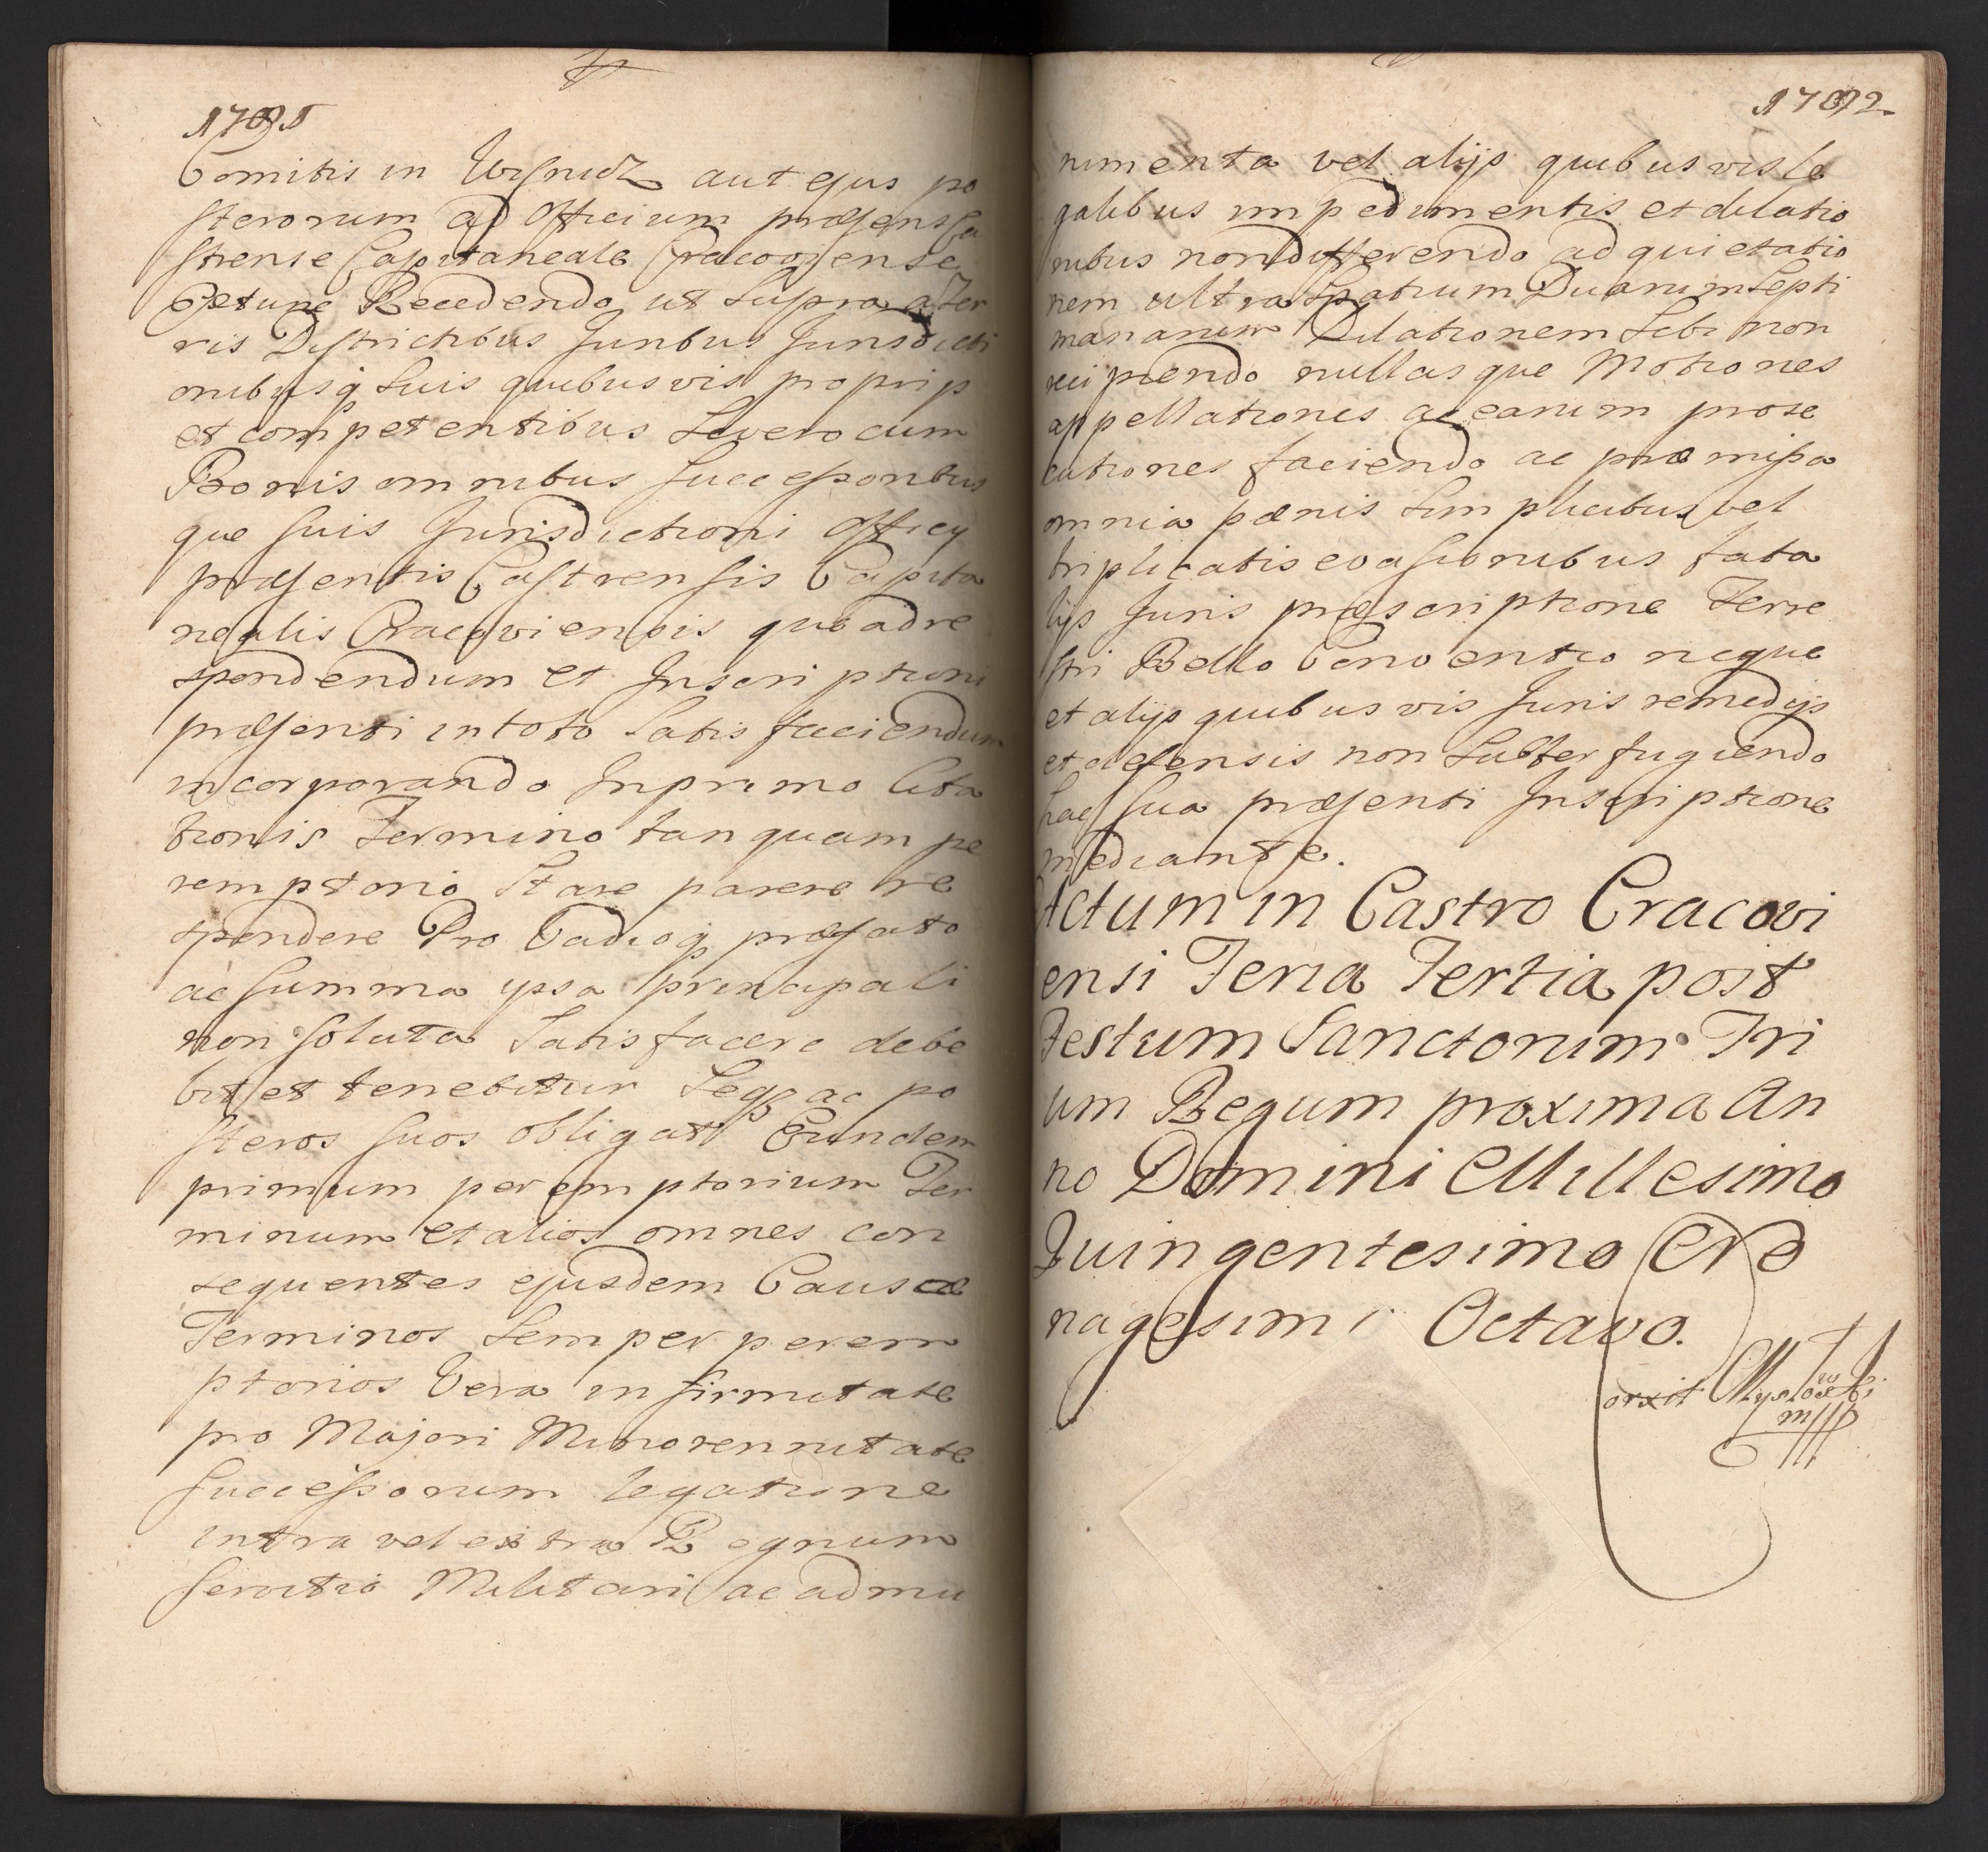 Comitis in Wisnicz aut ejus po
sterorum ad Officium præsens Ca
strense Capitaneale Cracoviense
Extunc Recedendo ut supra a Ter
ris Districtibus Juribus Jurisdicti
onibusq suis quibusvis proprijs
et competentibus se vero cum
Bonis omnibus successoribus
que suis Jurisdictioni Officij
præsentis Castrensis Capita
nealis Cracoviensis quo ad re
spondendum et Inscriptioni
præsenti in toto satis faciendum
incorporando In primo Cita
tionis Termino tanquam pe
remptorio Stare parere re
spondere Pro Vadioq præfato
ac summa ipsa principali
non soluta Satisfacere debe
bit et tenebitur Seqz ac po
steros suos obligat Eundem
primum peremptorium Ter
minum et alios omnes con
sequentes ejusdem Causæ
Terminos semper perem
ptorios Vera infirmitate
pro Majori Minorennitate
successorum legatione
intra vel extra Regnum
servitio Militari ac admu
nimenta vel alijs quibusvis le
galibus impedimentis et dilatio
nibus non differendo ad quietatio
nem ultra Spatium Duarum Septi
manarum Dilationem sibi non
recipiendo nullasque Motiones
appellationes ac earum prose
cutiones faciendo ac præmissa
omnia pænis simplicibus vel
triplicatis evasionibus fata
lijs Juris præscriptione Terre
stri Bello Conventio neque
et alijs quibusvis Juris remedijs
et defensis non subterfugiendo
hac sua præsenti Inscriptione
mediante.
Actum in Castro Cracovi
ensi Feria Tertia post
Festum Sanctorum Tri
um Regum proxima An
no Domini Millesimo
Quingentesimo No
nagesimi Octavo.